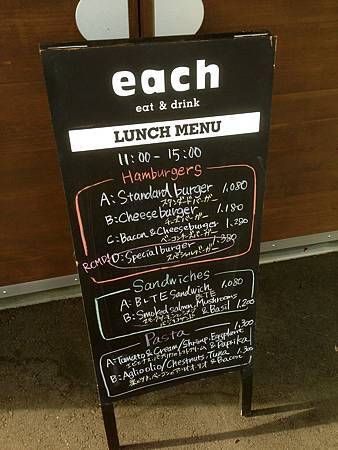 each
eat & drink
LUNCH MENU
11:00 - 15:00
Hamburgers
A: Standard burger 1,080
スタンダードバーガー
B: Cheese burger 1,180
チーズバーガー
C: Bacon & Cheese burger 1,280
ベーコンチーズバーガー
D: Special burger 1,380
スペシャルバーガー
Sandwiches
A: BLTE Sandwich 1,080
BLTE
B: Smoked salmon, Mushrooms
& Basil 1,200
Pasta 1,300
A: Tomato & Cream / Shrimp, Eggplant
& Paprika
B: Aglio olio / Chestnuts, Tuna 1,300
& Bacon